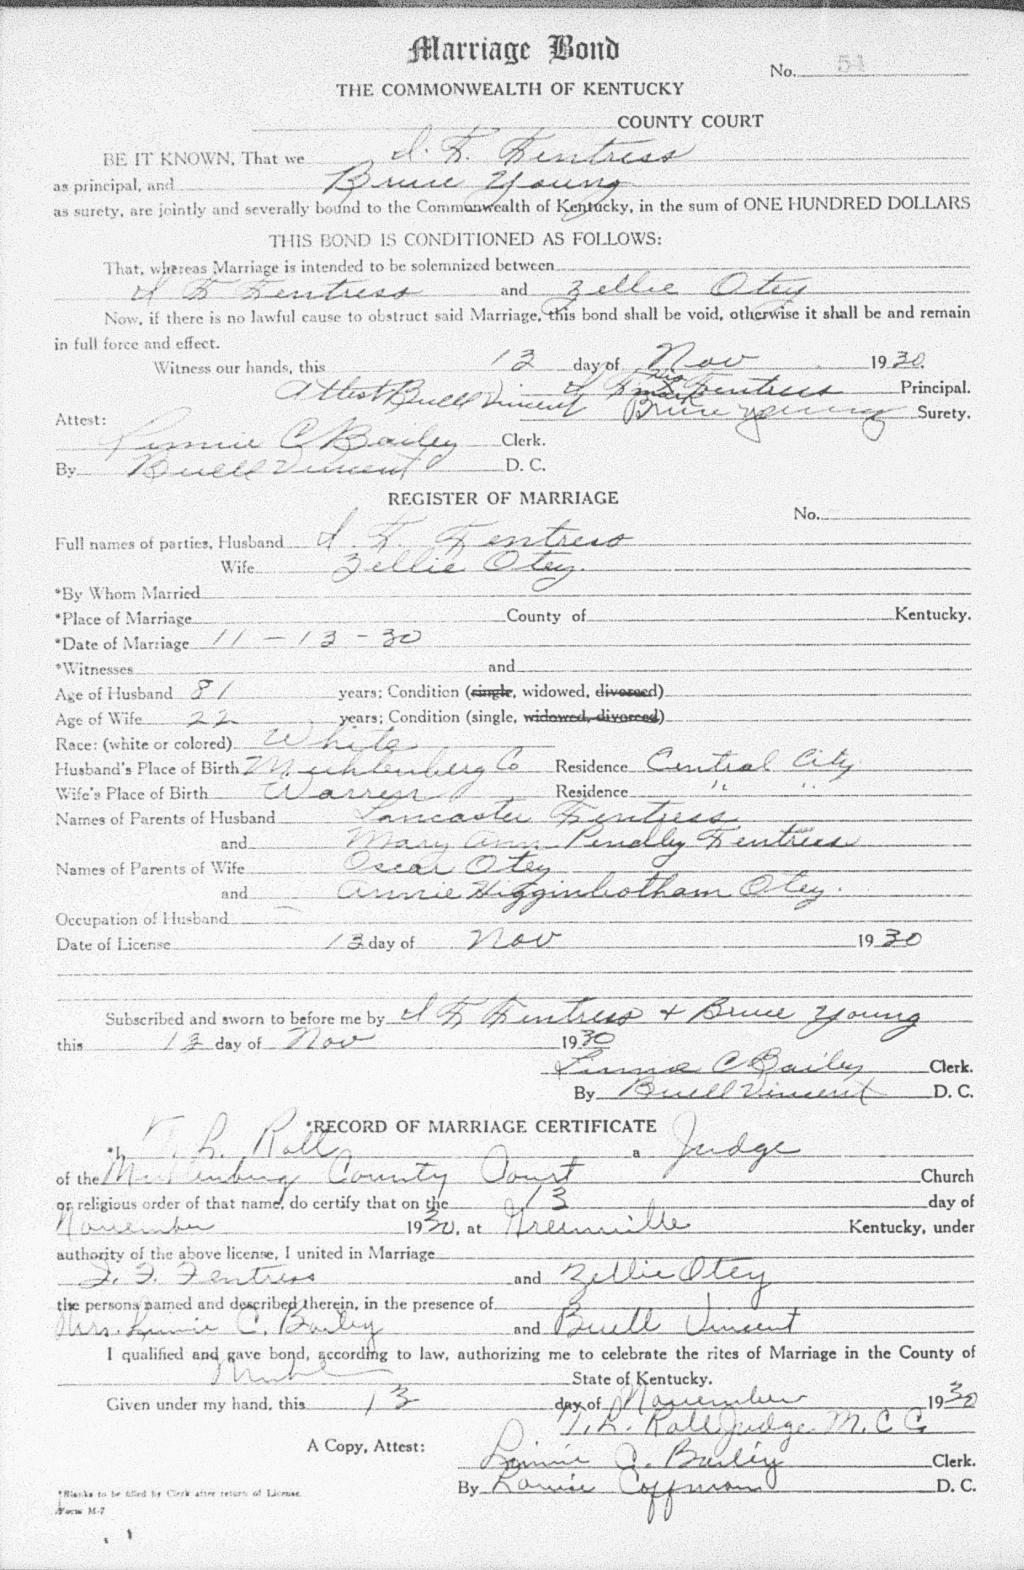 Marriage Bond
No. 51
THE COMMONWEALTH OF KENTUCKY
COUNTY COURT
BE IT KNOWN, That we I. F. Fentress
as principal, and Bruce Young
as surety, are jointly and severally bound to the Commonwealth of Kentucky, in the sum of ONE HUNDRED DOLLARS
THIS BOND IS CONDITIONED AS FOLLOWS:
That, whereas Marriage is intended to be solemnized between
I F Fentress and Zellie Otey
Now, if there is no lawful cause to obstruct said Marriage, this bond shall be void, otherwise it shall be and remain
in full force and effect.
Witness our hands, this 13 day of Nov 1930.
Attest Buell Vincent I F his X mark Fentress Principal.
Attest: Bruce Young Surety.
Linnie C Bailey Clerk.
By Buell Vincent D. C.
REGISTER OF MARRIAGE
No.
Full names of parties, Husband I. F. Fentress
Wife Zellie Otey.
*By Whom Married
*Place of Marriage County of Kentucky.
*Date of Marriage 11 - 13 - 30
*Witnesses and
Age of Husband 81 years; Condition (single, widowed, divorced)
Age of Wife 22 years; Condition (single, widowed, divorced)
Race: (white or colored) White
Husband's Place of Birth Muhlenberg Co Residence Central City
Wife's Place of Birth Warren Residence " "
Names of Parents of Husband Lancaster Fentress
and Mary Ann Pendley Fentress
Names of Parents of Wife Oscar Otey
and Annie Higginbotham Otey.
Occupation of Husband —
Date of License 13 day of Nov 1930
Subscribed and sworn to before me by I F Fentress + Bruce Young
this 13 day of Nov 1930
Linnie C Bailey Clerk.
By Buell Vincent D. C.
*RECORD OF MARRIAGE CERTIFICATE
*I T. L. Roll a Judge
of the Muhlenburg County Court Church
or religious order of that name, do certify that on the 13 day of
November 1930, at Greenville Kentucky, under
authority of the above license, I united in Marriage
I. F. Fentress and Zellie Otey
the persons named and described therein, in the presence of
Mrs. Linnie C. Bailey and Buell Vincent
I qualified and gave bond, according to law, authorizing me to celebrate the rites of Marriage in the County of
Muhl State of Kentucky.
Given under my hand, this 13 day of November 1930
T. L. Roll Judge M. C C
A Copy, Attest: Linnie C. Bailey Clerk.
By Louise Coffman D. C.
*Blanks to be filled by Clerk after return of License.
Form M-7